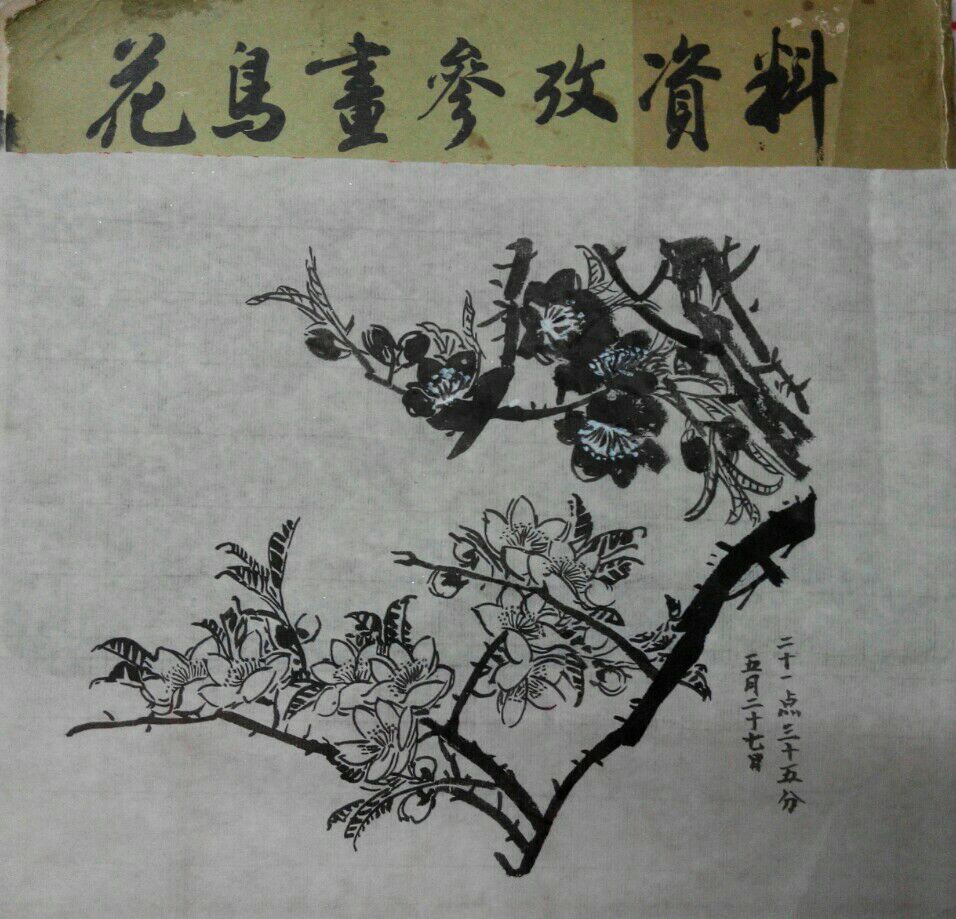 花鳥畫參攷資料
二十一点三十五分
五月二十七日